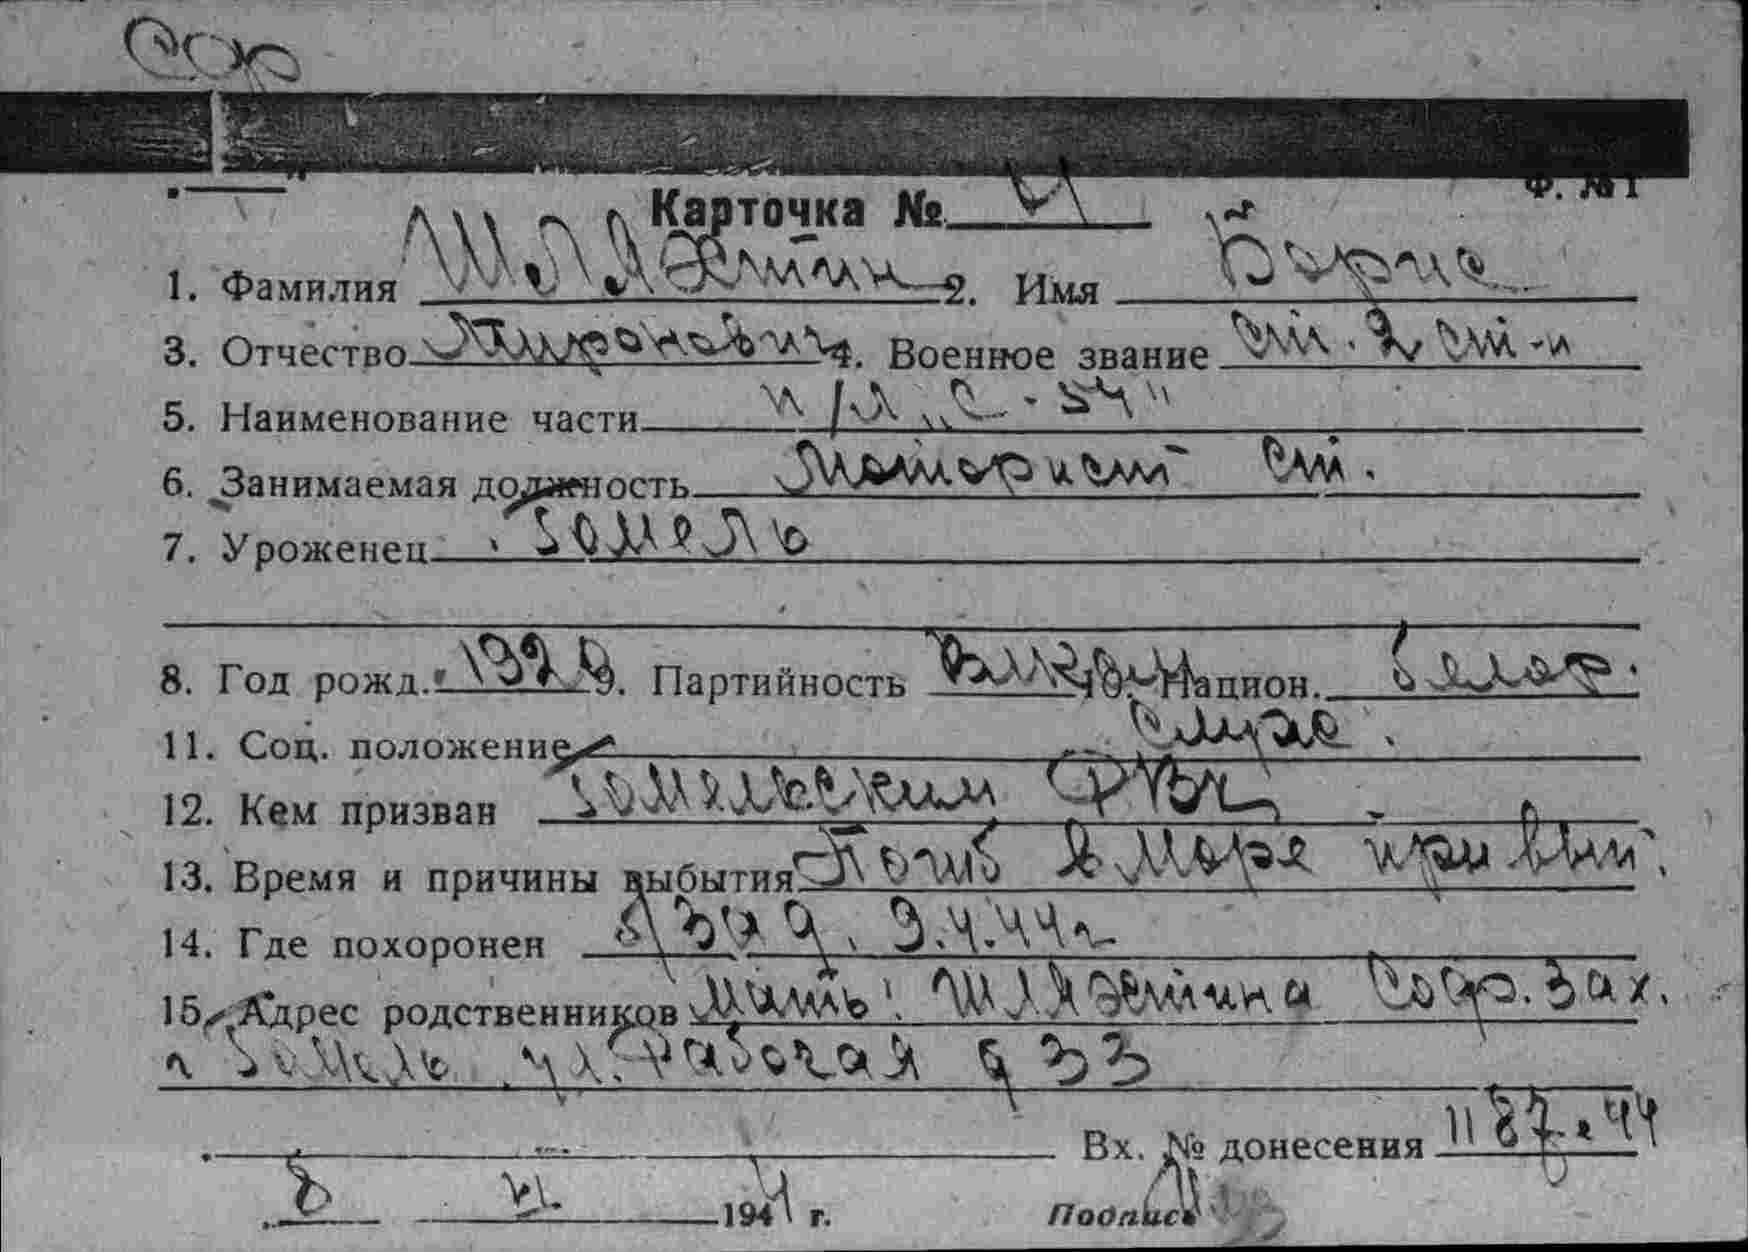 Ф. №1
Карточка № 4
1. Фамилия Шляхетин 2. Имя Борис
3. Отчество Миронович 4. Военное звание ст. 2 ст-и
5. Наименование части п/л „С-54"
6. Занимаемая должность Моторист ст.
7. Уроженец Гомель
8. Год рожд. 192 9. Партийность 10. Национ. белор.
11. Соц. положение служ.
12. Кем призван Гомельским РВК
13. Время и причины выбытия Погиб в море при вып.
14. Где похоронен б/зад. 9.4.44г
15. Адрес родственников Мать: Шляхетина Соф. Зах.
г Гомель ул. Рабочая д 33
Вх. № донесения 44
8 VI 1944 г. Подпись